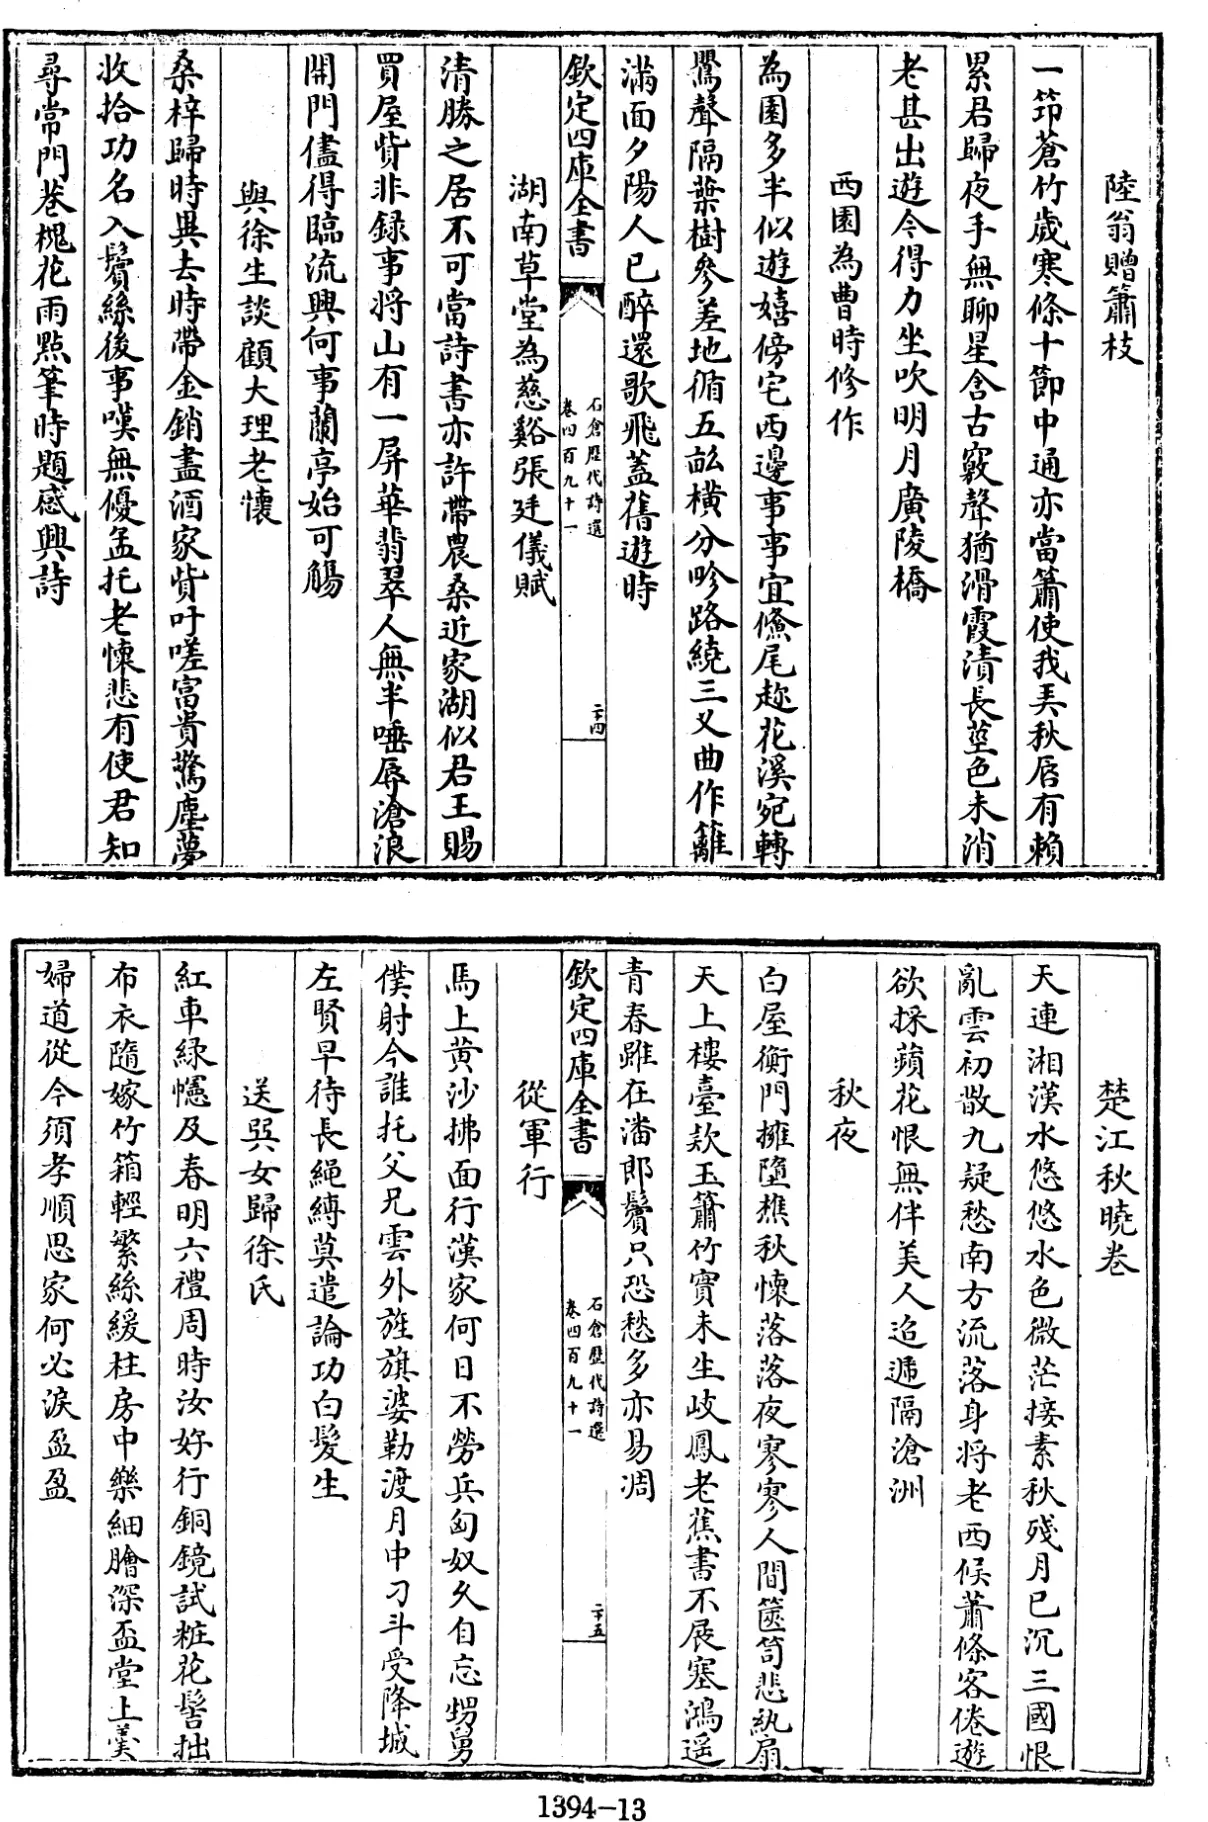 陸翁贈簫枝
一笻蒼竹歲寒條十節中通亦當簫使我弄秋唇有賴
累君歸夜手無聊星含古竅聲猶滑霞漬長莖色未消
老甚出遊令得力坐吹明月廣陵橋
西園為曹時修作
為園多半似遊嬉傍宅西邊事事宜鯈尾趂花溪宛轉
鸎聲隔葉樹參差地循五畝橫分畛路繞三叉曲作籬
滿面夕陽人已醉還歌飛蓋舊遊時
欽定四庫全書
石倉歷代詩選
卷四百九十一
二十四
湖南草堂為慈谿張廷儀賦
清勝之居不可當詩書亦許帶農桑近家湖似君王賜
買屋貲非録事將山有一屏華翡翠人無半唾辱滄浪
開門儘得臨流興何事蘭亭始可觴
與徐生談顧大理老懷
桑梓歸時異去時帶金銷盡酒家貲吁嗟富貴驚塵夢
收拾功名入鬢絲後事嘆無優孟托老懷悲有使君知
尋常門巷槐花雨點筆時題感興詩
楚江秋曉卷
天連湘漢水悠悠水色微茫接素秋殘月已沉三國恨
亂雲初散九疑愁南方流落身将老西候蕭條客倦遊
欲採蘋花恨無伴美人迢遞隔滄洲
秋夜
白屋衡門擁墮樵秋懷落落夜寥寥人間篋笥悲紈扇
天上樓臺欵玉簫竹實未生岐鳳老蕉書不展塞鴻遥
青春雖在潘郎鬢只恐愁多亦易凋
欽定四庫全書
石倉歷代詩選
卷四百九十一
二十五
從軍行
馬上黄沙拂面行漢家何日不勞兵匈奴久自忘甥舅
僕射今誰托父兄雲外旌旗婆勒渡月中刁斗受降城
左賢早待長繩縛莫遣論功白髮生
送巽女歸徐氏
紅車緑幰及春明六禮周時汝好行銅鏡試粧花髻拙
布衣隨嫁竹箱輕繁絲緩柱房中樂細膾深盃堂上羮
婦道從今須孝順思家何必淚盈盈
1394-13